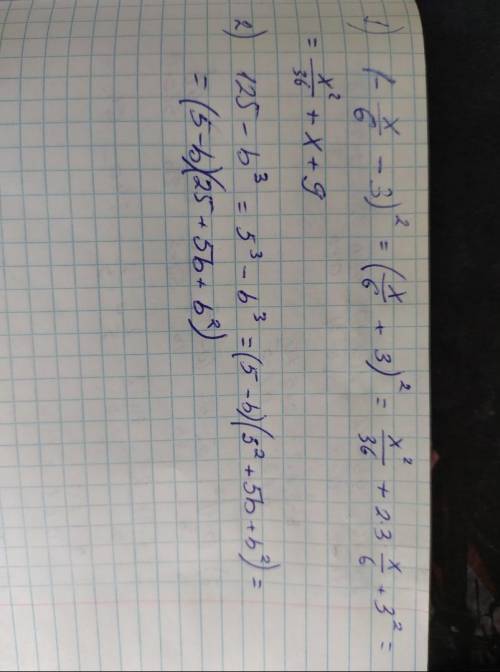 1) (-x/6 - 3)² = (x/6 + 3)² = x²/36 + 2·3 x/6 + 3² =
= x²/36 + x + 9
2) 125 - b³ = 5³ - b³ = (5 - b)(5² + 5b + b²) =
= (5 - b)(25 + 5b + b²)